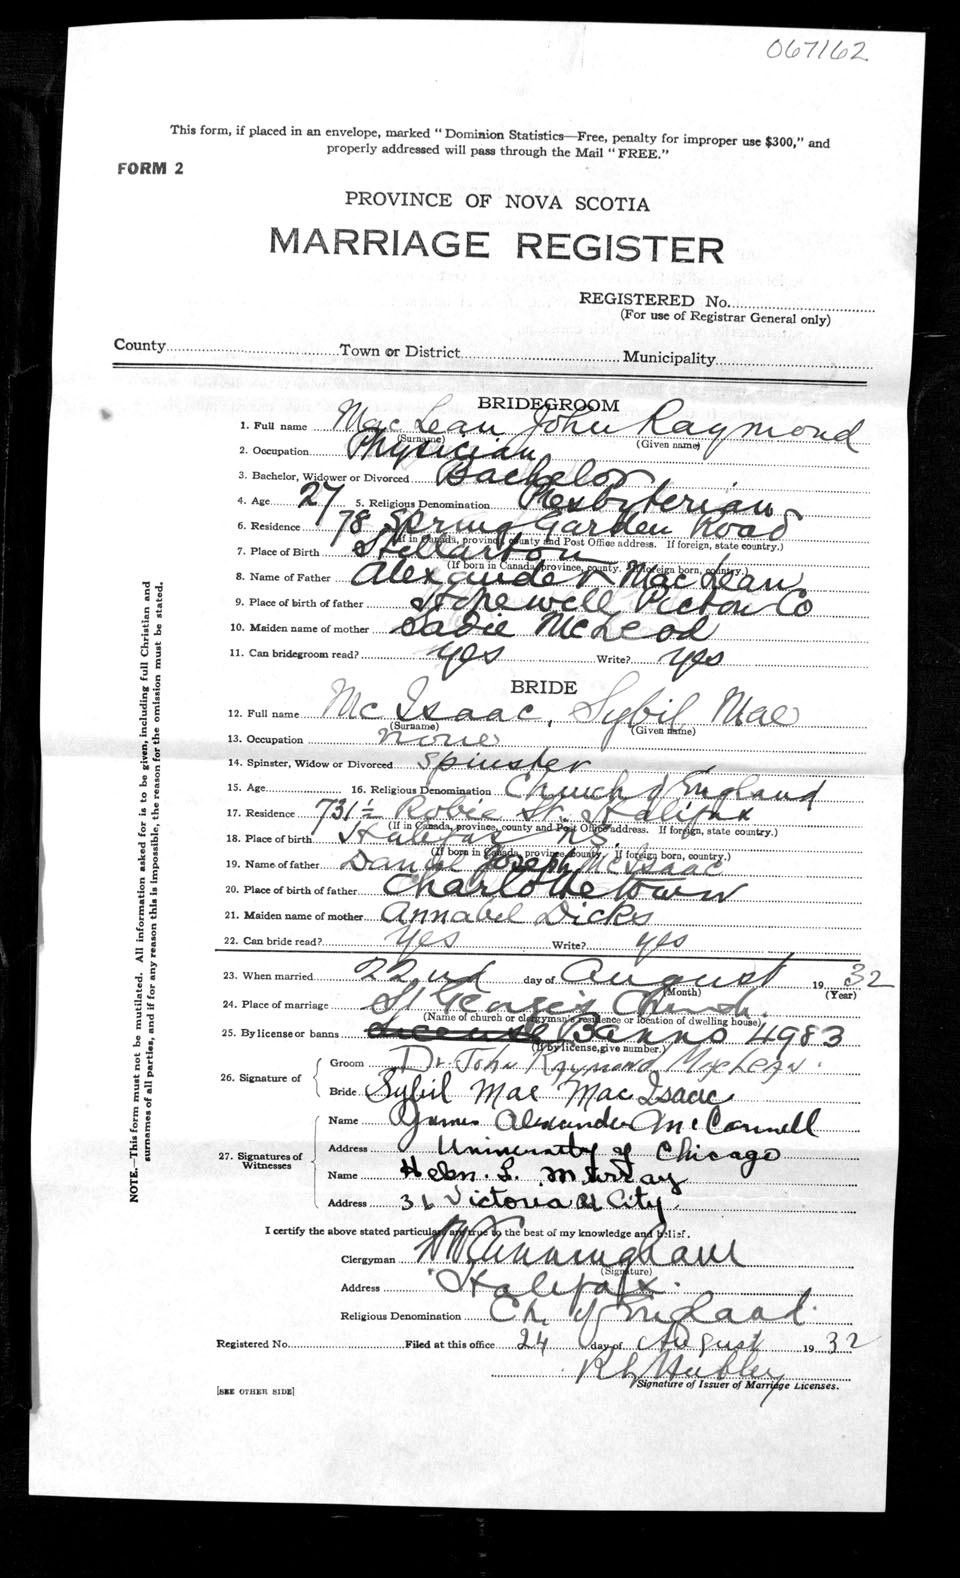 067162
This form, if placed in an envelope, marked "Dominion Statistics—Free, penalty for improper use $300," and
properly addressed will pass through the Mail "FREE."
FORM 2
PROVINCE OF NOVA SCOTIA
MARRIAGE REGISTER
REGISTERED No.
(For use of Registrar General only)
County Town or District Municipality
BRIDEGROOM
1. Full name MacLean John Raymond
(Surname) (Given name)
2. Occupation Physician
3. Bachelor, Widower or Divorced Bachelor
4. Age 27 5. Religious Denomination Presbyterian
6. Residence 78 Spring Garden Road
(If in Canada, province, county and Post Office address. If foreign, state country.)
7. Place of Birth Stellarton
(If born in Canada, province, county. If foreign born, country.)
8. Name of Father Alexander MacLean
9. Place of birth of father Hopewell Pictou Co
10. Maiden name of mother Sadie McLeod
11. Can bridegroom read? yes Write? yes
BRIDE
12. Full name McIsaac, Sybil Mae
(Surname) (Given name)
13. Occupation none
14. Spinster, Widow or Divorced Spinster
15. Age 16. Religious Denomination Church of England
17. Residence 731½ Robie St. Halifax
(If in Canada, province, county and Post Office address. If foreign, state country.)
18. Place of birth Halifax N.S.
(If born in Canada, province, county. If foreign born, country.)
19. Name of father Daniel Joseph McIsaac
20. Place of birth of father Charlottetown
21. Maiden name of mother Annabel Dicks
22. Can bride read? yes Write? yes
23. When married 22nd day of August 1932
(Month) (Year)
24. Place of marriage St George's Church.
(Name of church or clergyman's residence or location of dwelling house)
25. By license or banns license Banns 4983
(If by license, give number.)
26. Signature of Groom Dr. John Raymond MacLean.
Bride Sybil Mae MacIsaac
27. Signatures of Witnesses Name James Alexander McConnell
Address University of Chicago
Name Helen. L. Murray
Address 36 Victoria Rd City.
I certify the above stated particulars are true to the best of my knowledge and belief.
Clergyman Cunningham
(Signature)
Address Halifax.
Religious Denomination Ch. of England.
Registered No. Filed at this office 24 day of August 1932
Hubley
Signature of Issuer of Marriage Licenses.
[SEE OTHER SIDE]
NOTE.—This form must not be mutilated. All information asked for is to be given, including full Christian and
surnames of all parties, and if for any reason this is impossible, the reason for the omission must be stated.